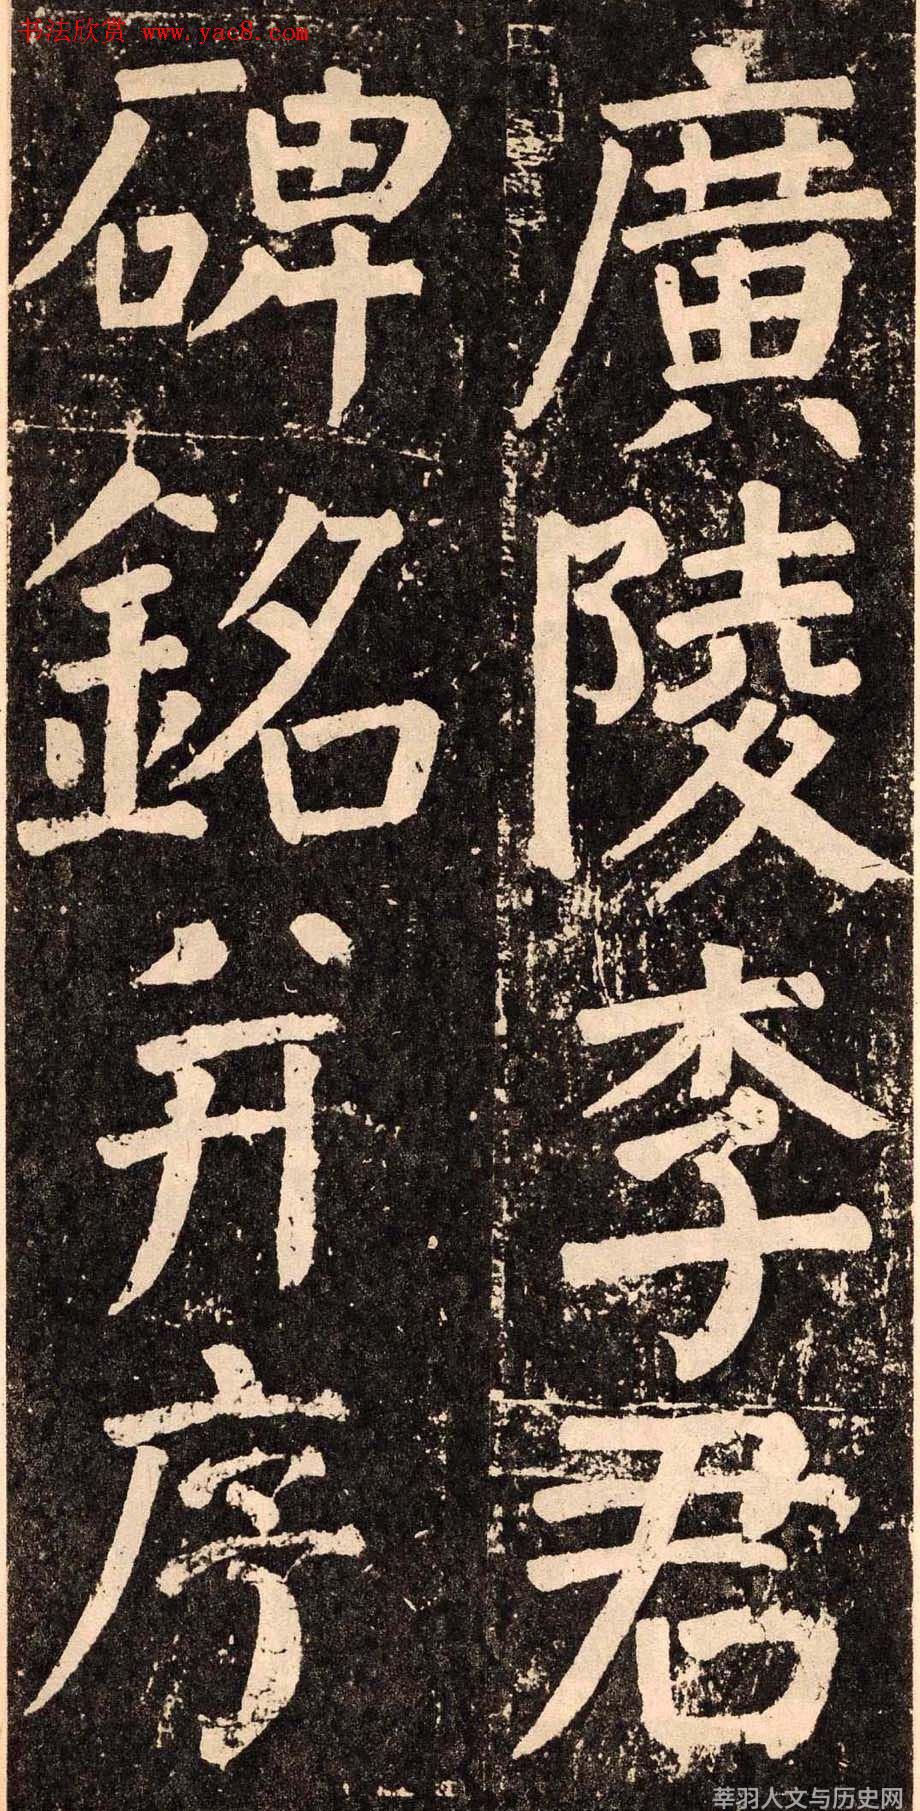 书法欣赏 www.yac8.com
廣陵李君
碑銘并序
莘羽人文与历史网